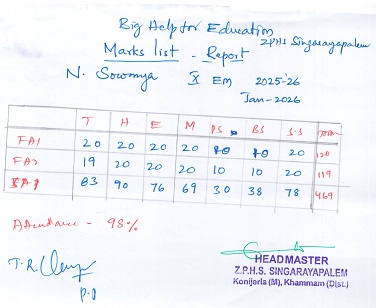 Big Help for Education
ZPHS Singarayapalem
Marks list - Report
N. Sowmya X EM 2025-26
Jan-2026
T H E M PS BS S.S Total
FA1 20 20 20 20 10 10 20 120
FA2 19 20 20 20 10 10 20 119
SA-1 83 90 76 69 30 38 78 469
Attendance - 98%
HEADMASTER
Z.P.H.S. SINGARAYAPALEM
Konijerla (M), Khammam (Dist.)